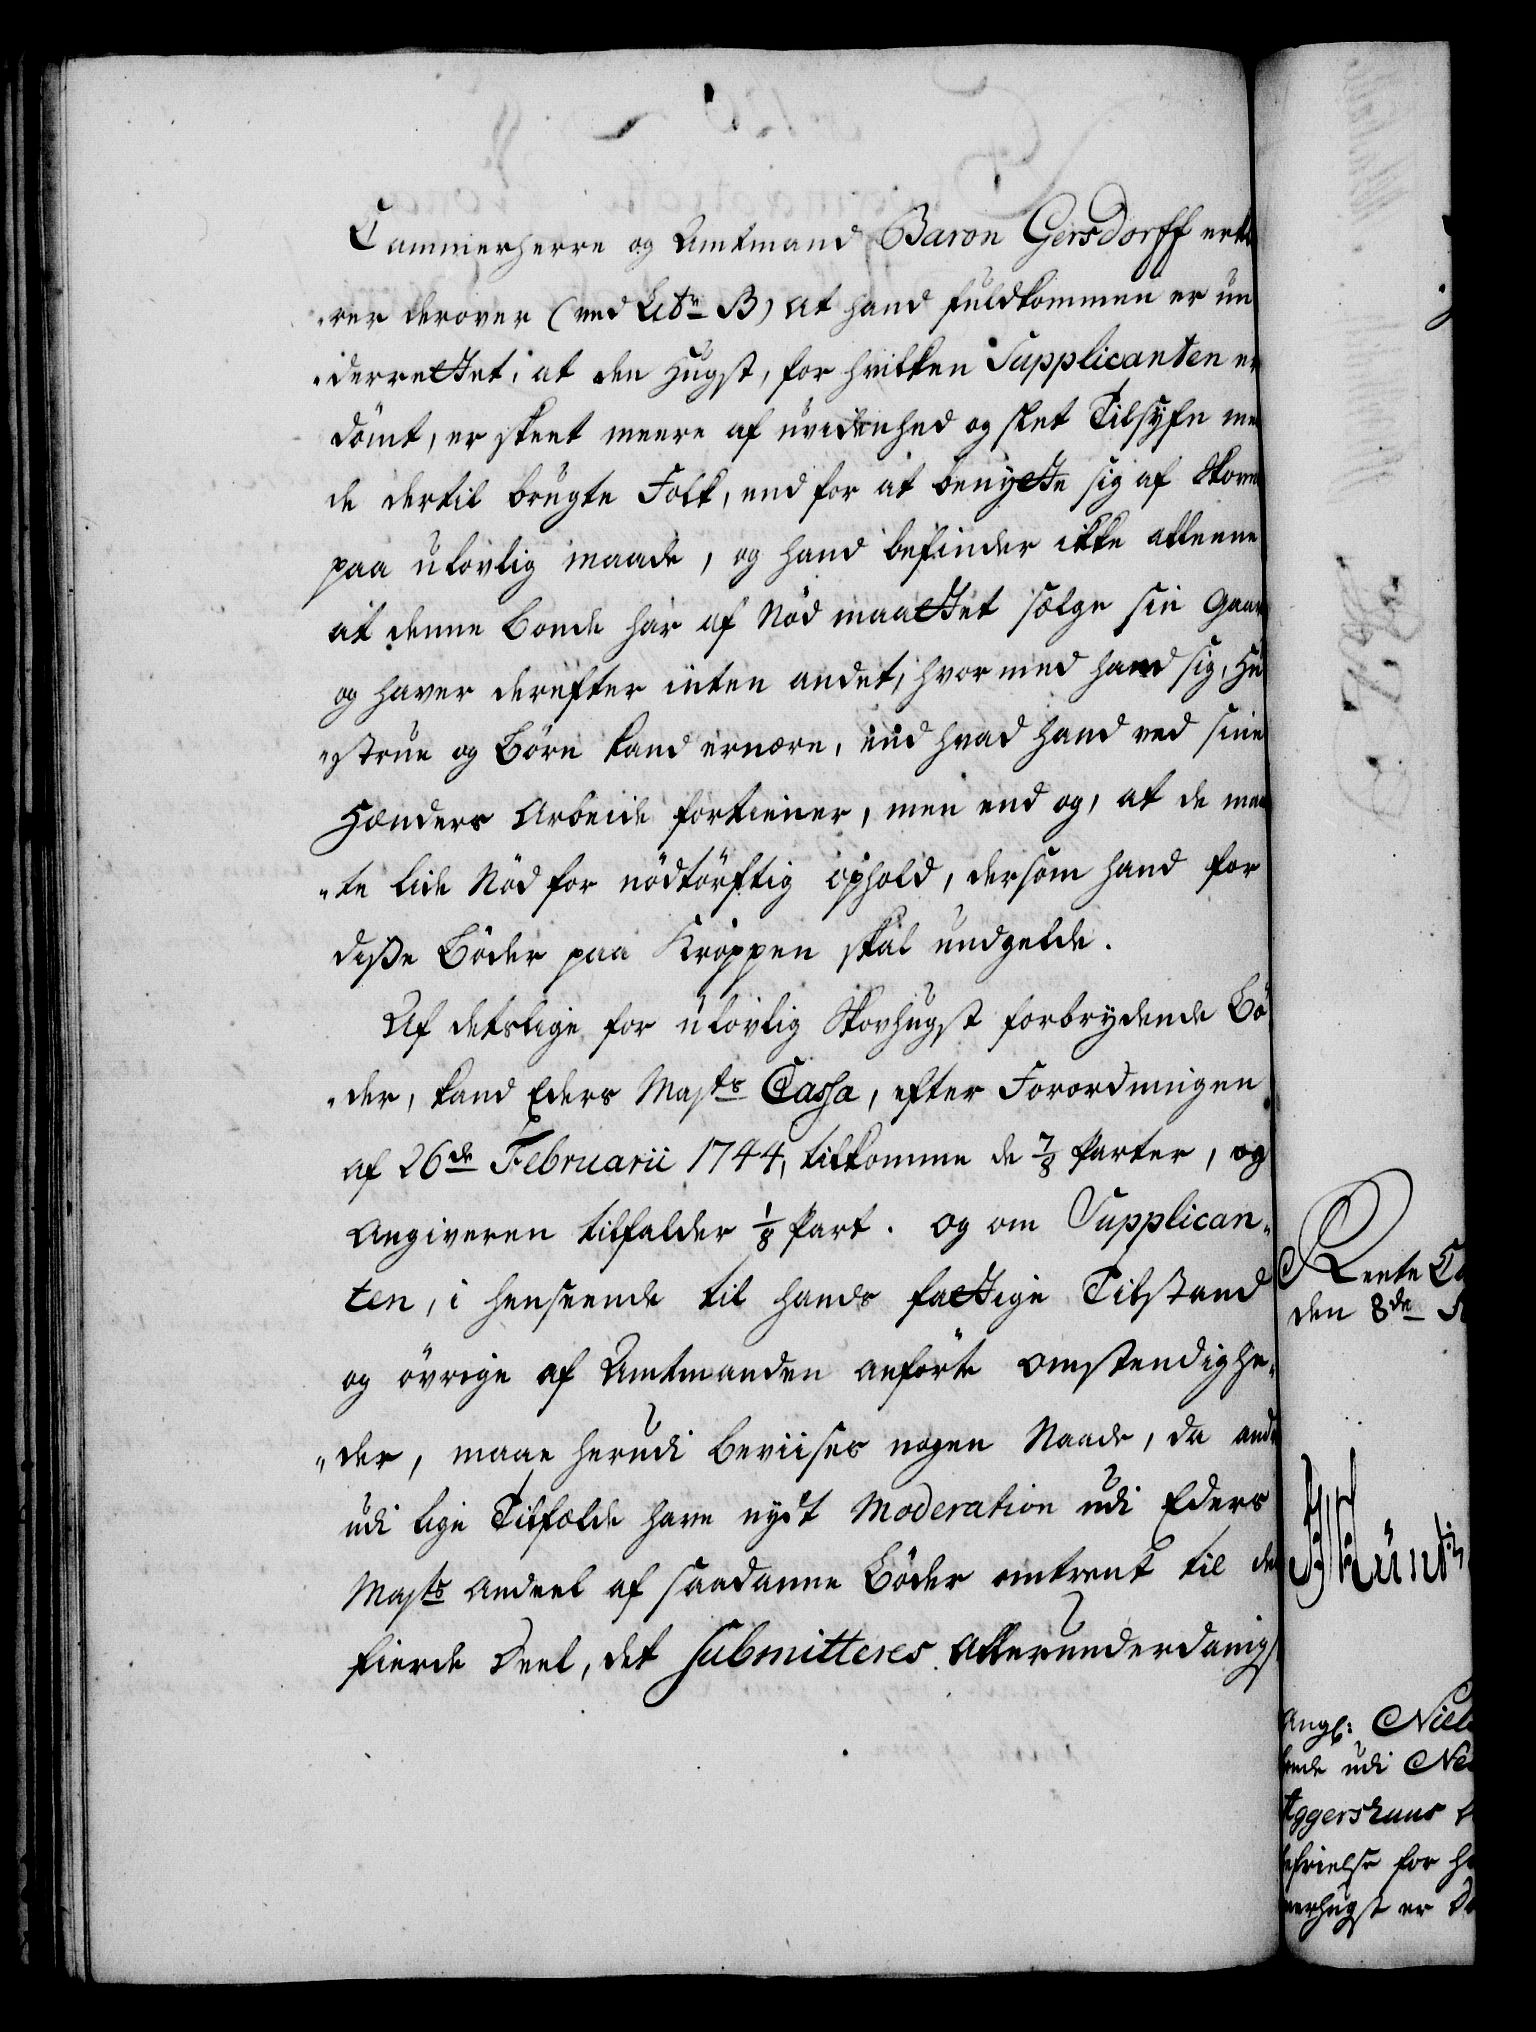 Cammerherre og Amtmand Baron Gersdorff erklæ
„rer derover (ved Litr: B) at hand fuldkommen er un
„derrettet, at den Hugst, for hvilken Supplicanten er
dömt, er skeet meere af uvidenhed og slet Tilsyfn med
de dertil brugte Folk, end for at benytte sig af Skoven
paa ulovlig maade, og hand befinder ikke alleene
at denne Bonde har af Nöd maattet sælge sin Gaard
og haver derefter inten andet, hvor med hand sig, Hu
„strue og Börn kand ernære, end hvad hand ved sine
Hænders Arbeide fortiener, men end og, at de maa
„te lide Nöd for nödtörftig ophold, dersom hand for
diße Böder paa Kroppen skal undgelde.
Af detslige for ulovlig Skovhugst forbrydende Bö
„der, kand Eders Majts Cassa, efter Forordningen
af 26de Februarii 1744, tilkomme de 7/8 Parter, og
Angiveren tilfalder 1/8 Part. Og om Supplican„
ten, i henseende til hands fattige Tilstand
og övrige af Amtmanden anförte omstendighe„
„der, maae herudi beviises nogen Naade, da andre
udi lige Tilfælde have nydt Moderation udi Eders
Majts Andeel af saadanne Böder omtrent til den
fierde Deel, det submitteres allerunderdanigst
Rente Ca
den 8de
Angl: Niels
bonde udi Ne
Aggershuus
befrielse for
verhugst er